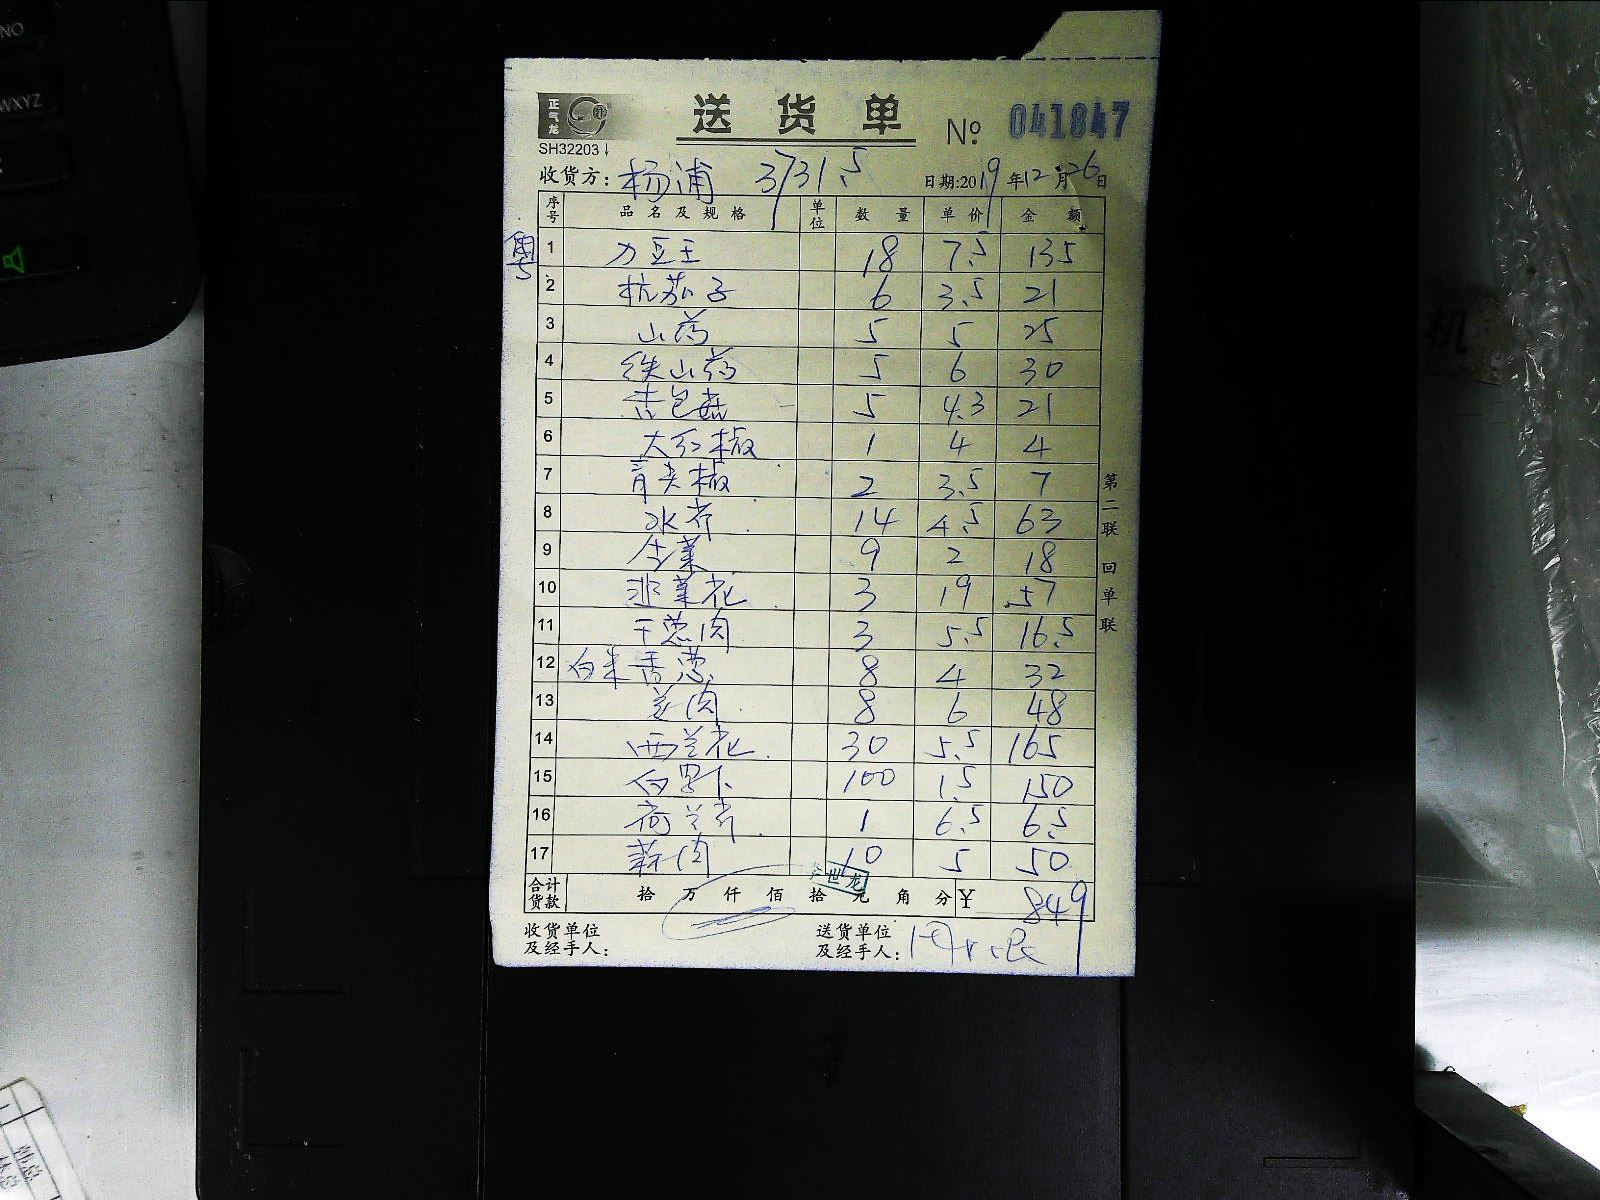 NO
WXYZ
正气龙
送货单
SH32203
No. 041847
收货方: 杨浦 3731.5 日期:2019年12月26日
序号 品名及规格 单位 数量 单价 金额
1 刀豆王 18 7.5 135
2 杭茄子 6 3.5 21
3 山药 5 5 25
4 铁山药 5 6 30
5 杏包菇 5 4.3 21
6 大红椒 1 4 4
7 青尖椒 2 3.5 7
8 水芹 14 4.5 63
9 生菜 9 2 18
10 韭菜花 3 19 57
11 干葱肉 3 5.5 16.5
12 白米香葱 8 4 32
13 姜肉 8 6 48
14 西兰花 30 5.5 165
15 白罗卜 100 1.5 150
16 荷兰芹 1 6.5 6.5
17 蒜肉 10 5 50
世龙
合计货款 拾 万 仟 佰 拾 元 角 分 ¥ 849
收货单位及经手人: 送货单位及经手人:
第二联 回单联
机